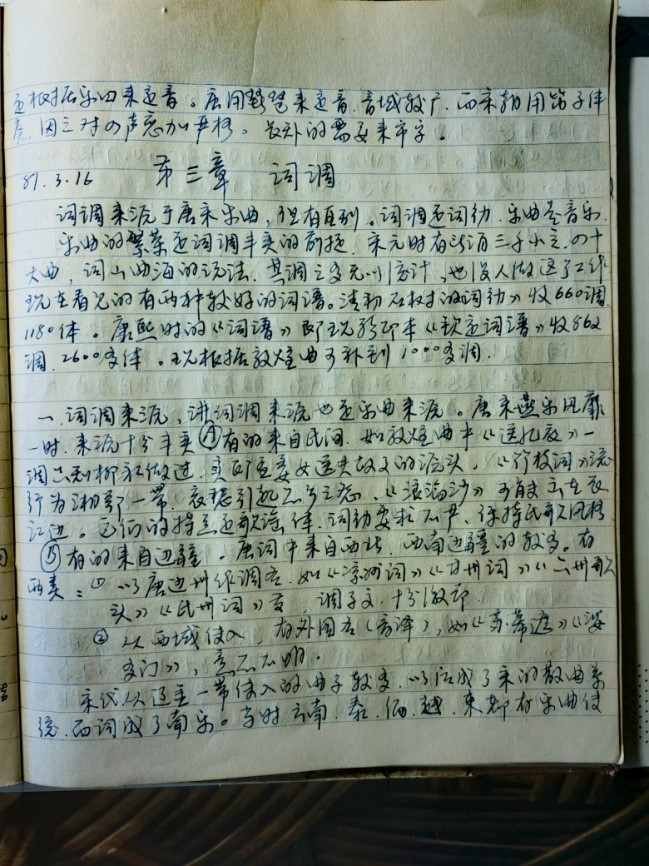 是根据乐曲来定音。唐用琵琶来定音.音域较广.而宋初用笛子伴
奏.因之对四声愈加严格。
87.3.16 第三章 词调
词调来源于唐宋乐曲,但有区别。词调是词韵.乐曲是音乐.
乐曲的繁荣是词调丰实的前提.宋元时有所谓三千小令.四十
大曲,词山曲海的说法.其调之多无以统计,也没人做这个工作
现在看见的有两种较好的词谱。清初万树的词韵》收660调
1180体。康熙时的《词谱》即现影印本《钦定词谱》收862
调.2600多体。现根据敦煌曲可补到1000多调.
一.词调来源,讲词调来源也是乐曲来源。唐宋燕乐风靡
一时.来源十分丰实Ⓐ有的来自民间.如敦煌曲中《送征衣》一
调只到柳永做过.实即孟姜女送夫故事的源头.《竹枝词》流
行为湘鄂一带.《浪淘沙》可能产生在长
江边。它们的特点是歌谣体.词韵要求不严.保持民歌风格
Ⓑ有的来自边疆.唐词中来自西北.西南边疆的较多。有
两类:① 以唐边州作调名.如《凉州词》《甘州词》《六州歌
头》《氐州词》等,调子文.十分激昂.
② 从西域传入.有外国名(音译),如《苏幕遮》《婆
罗门》,意不不明.
宋代从辽金一带传入的曲子较多.以后成了宋的散曲系
统.而词成了南乐。当时云南.泰.缅.越.柬都有乐曲传